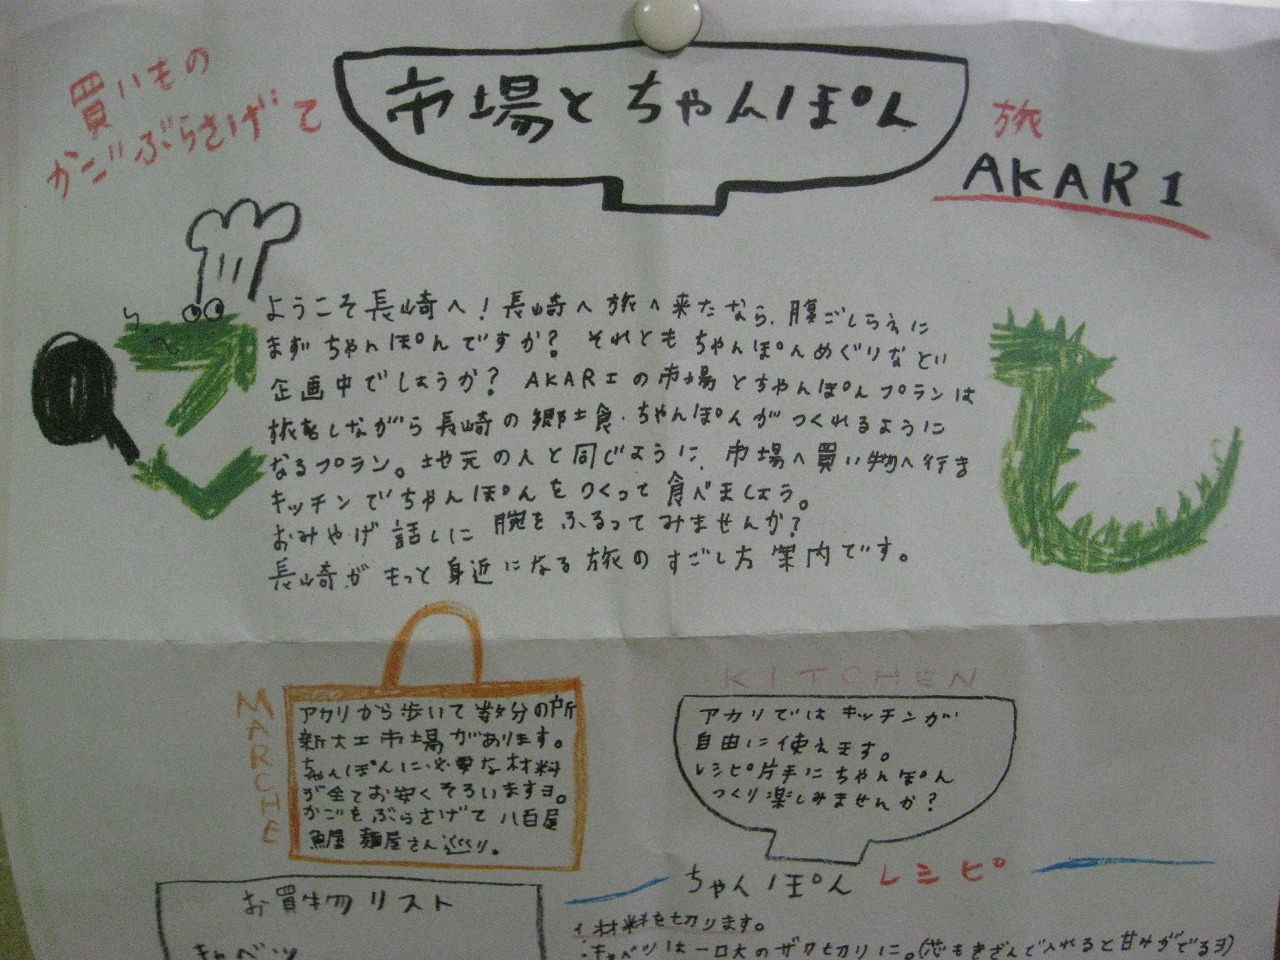 買いもの
かごぶらさげて
市場とちゃんぽん
旅
AKARI
ようこそ長崎へ!長崎へ旅へ来たなら、腹ごしらえに
まずちゃんぽんですか? それともちゃんぽんめぐりなどい
企画中でしょうか? AKARIの市場とちゃんぽんプランは
旅をしながら長崎の郷土食・ちゃんぽんがつくれるように
なるプラン。地元の人と同じように、市場へ買い物へ行き
キッチンでちゃんぽんをつくって食べましょう。
おみやげ話しに腕をふるってみませんか?
長崎がもっと身近になる旅のすごし方案内です。
MARCHE
アカリから歩いて数分の所
新大工市場があります。
ちゃんぽんに必要な材料
が全てお安くそろいますヨ。
かごをぶらさげて八百屋
魚屋 麺屋さん巡り。
KITCHEN
アカリではキッチンが
自由に使えます。
レシピ片手にちゃんぽん
つくり楽しみませんか?
お買物リスト
キャベツ
ちゃんぽんレシピ
1 材料を切ります。
・キャベツは一口大のザク切りに。(芯もきざんで入れると甘みがでるヨ)